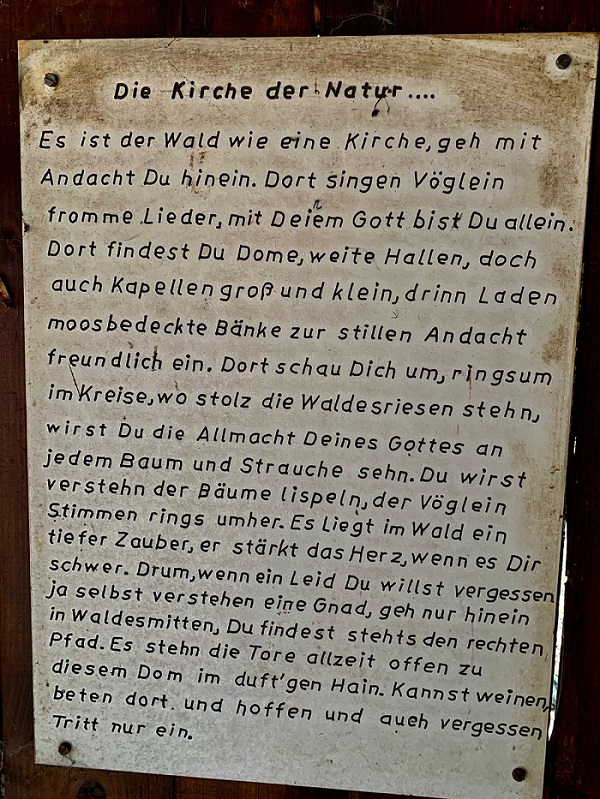 Die Kirche der Natur....
Es ist der Wald wie eine Kirche, geh mit
Andacht Du hinein. Dort singen Vöglein
fromme Lieder, mit Deiem Gott bist Du allein.
Dort findest Du Dome, weite Hallen, doch
auch Kapellen groß und klein, drinn Laden
moosbedeckte Bänke zur stillen Andacht
freundlich ein. Dort schau Dich um, ringsum
im Kreise, wo stolz die Waldesriesen stehn,
wirst Du die Allmacht Deines Gottes an
jedem Baum und Strauche sehn. Du wirst
verstehn der Bäume lispeln, der Vöglein
Stimmen rings umher. Es Liegt im Wald ein
tiefer Zauber, er stärkt das Herz, wenn es Dir
schwer. Drum, wenn ein Leid Du willst vergessen
ja selbst verstehen eine Gnad, geh nur hinein
in Waldesmitten, Du findest stehts den rechten
Pfad. Es stehn die Tore allzeit offen zu
diesem Dom im duft'gen Hain. Kannst weinen,
beten dort und hoffen und aueh vergessen
Tritt nur ein.